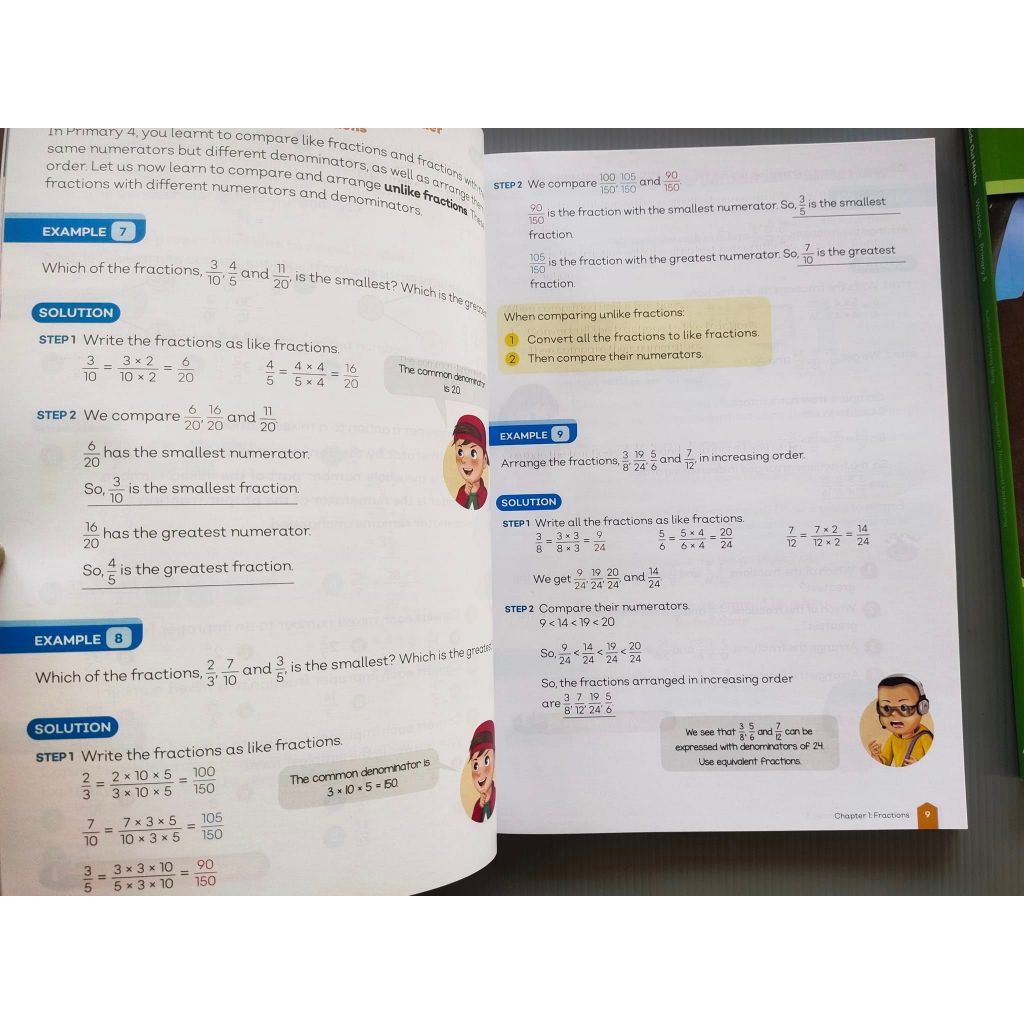 In Primary 4, you learnt to compare like fractions and fractions with
same numerators but different denominators, as well as arrange
order. Let us now learn to compare and arrange unlike fractions.
fractions with different numerators and denominators.
EXAMPLE 7
Which of the fractions, 3/10, 4/5 and 11/20, is the smallest? Which is the
SOLUTION
STEP 1 Write the fractions as like fractions.
3/10 = (3 × 2)/(10 × 2) = 6/20 4/5 = (4 × 4)/(5 × 4) = 16/20
The common denominator
is 20.
STEP 2 We compare 6/20, 16/20 and 11/20.
6/20 has the smallest numerator.
So, 3/10 is the smallest fraction.
16/20 has the greatest numerator.
So, 4/5 is the greatest fraction.
EXAMPLE 8
Which of the fractions, 2/3, 7/10 and 3/5, is the smallest? Which is the
SOLUTION
STEP 1 Write the fractions as like fractions.
2/3 = (2 × 10 × 5)/(3 × 10 × 5) = 100/150
The common denominator is
3 × 10 × 5 = 150.
7/10 = (7 × 3 × 5)/(10 × 3 × 5) = 105/150
3/5 = (3 × 3 × 10)/(5 × 3 × 10) = 90/150
STEP 2 We compare 100/150, 105/150 and 90/150.
90/150 is the fraction with the smallest numerator. So, 3/5 is the smallest
fraction.
105/150 is the fraction with the greatest numerator. So, 7/10 is the greatest
fraction.
When comparing unlike fractions:
1 Convert all the fractions to like fractions.
2 Then compare their numerators.
EXAMPLE 9
Arrange the fractions, 3/8, 19/24, 5/6 and 7/12, in increasing order.
SOLUTION
STEP 1 Write all the fractions as like fractions.
3/8 = (3 × 3)/(8 × 3) = 9/24 5/6 = (5 × 4)/(6 × 4) = 20/24 7/12 = (7 × 2)/(12 × 2) = 14/24
We get 9/24, 19/24, 20/24, and 14/24.
STEP 2 Compare their numerators.
9 < 14 < 19 < 20
So, 9/24 < 14/24 < 19/24 < 20/24
So, the fractions arranged in increasing order
are 3/8, 7/12, 19/24, 5/6.
We see that 3/8, 5/6 and 7/12 can be
expressed with denominators of 24.
Use equivalent fractions.
Chapter 1: Fractions 9
Out Maths Workbook Primary 5